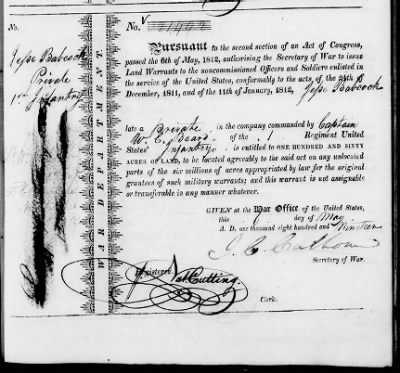 No.
No.
Jesse Babcock
Private
1st Infantry
WAR DEPARTMENT.
Pursuant to the second section of an Act of Congress,
passed the 6th of May, 1812, authorising the Secretary of War to issue
Land Warrants to the noncommissioned Officers and Soldiers enlisted in
the service of the United States, conformably to the acts, of the 24th
December, 1811, and of the 11th of January, 1812, Jesse Babcock
late a Private in the company commanded by Captain
W. C. Beard of the 1 Regiment United
States' Infantry is entitled to ONE HUNDRED AND SIXTY
ACRES OF LAND, to be located agreeably to the said act on any unlocated
parts of the six millions of acres appropriated by law for the original
grantees of such military warrants; and this warrant is not assignable
or transferable in any manner whatever.
GIVEN at the War Office of the United States,
this 6 day of May
A. D. one thousand eight hundred and Nineteen
J. C. Calhoun
Secretary of War.
Registered Nat Cutting
Clerk.